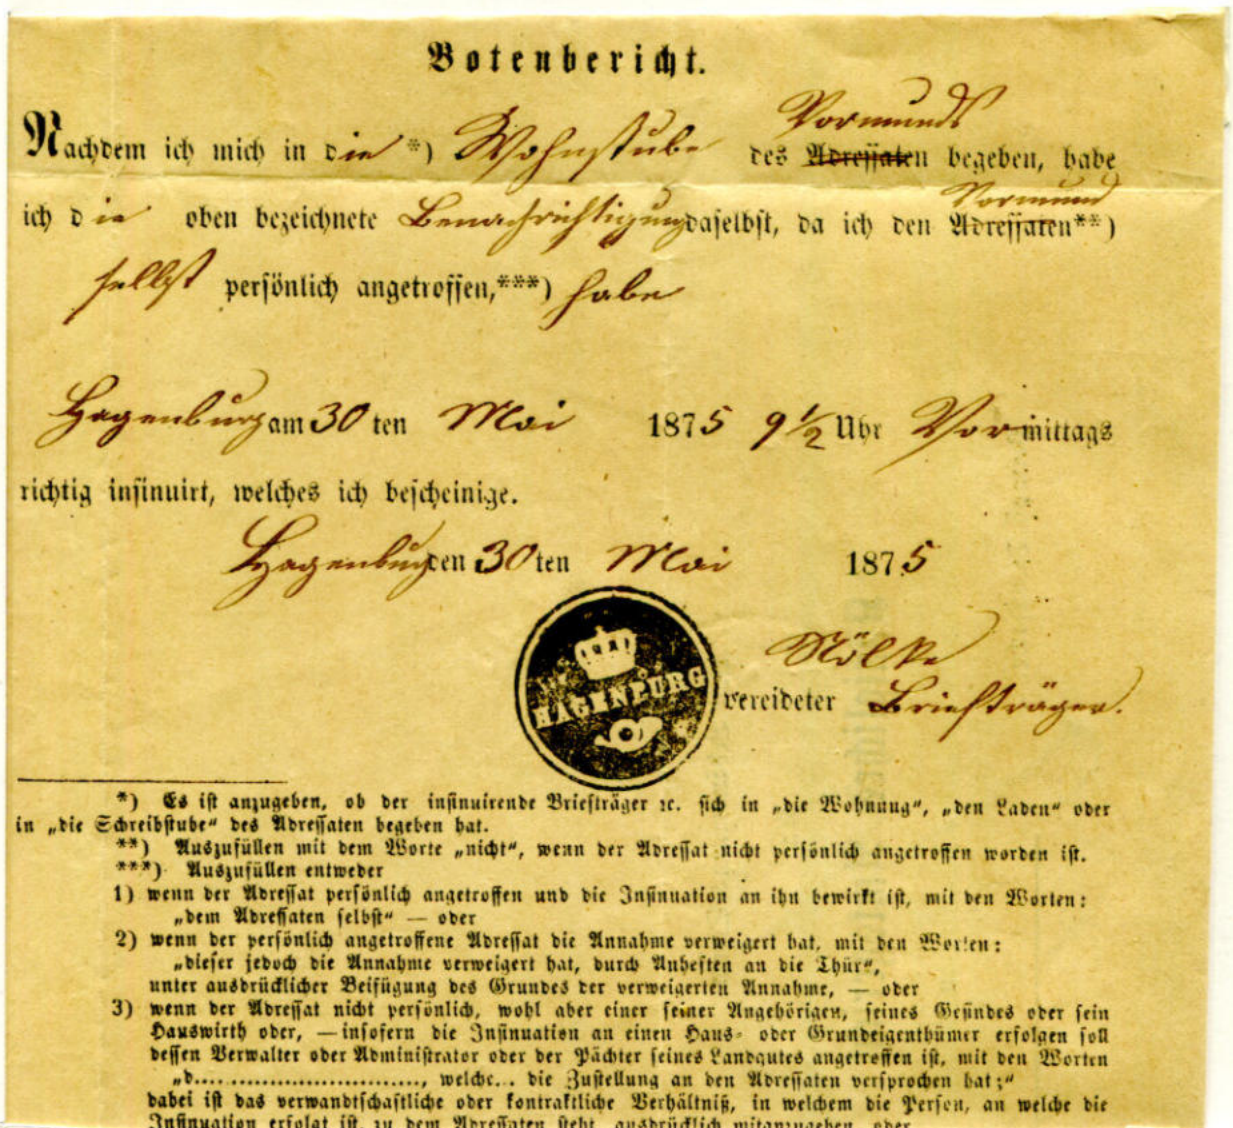 Botenbericht.
Vormunds
Nachdem ich mich in die *) Wohnstube des Adressaten begeben, habe
Vormund
ich die oben bezeichnete Benachrichtigung daselbst, da ich den Adressaten**)
selbst persönlich angetroffen,***) habe
Hagenburg am 30ten Mai 1875 9½ Uhr Vormittags
richtig insinuirt, welches ich bescheinige.
Hagenburg den 30ten Mai 1875
HAGENBURG
Nölke
vereideter Briefträger.
*) Es ist anzugeben, ob der insinuirende Briefträger ꝛc. sich in „die Wohnung“, „den Laden“ oder
in „die Schreibstube“ des Adressaten begeben hat.
**) Auszufüllen mit dem Worte „nicht“, wenn der Adressat nicht persönlich angetroffen worden ist.
***) Auszufüllen entweder
1) wenn der Adressat persönlich angetroffen und die Insinuation an ihn bewirkt ist, mit den Worten:
„dem Adressaten selbst“ — oder
2) wenn der persönlich angetroffene Adressat die Annahme verweigert hat, mit den Worten:
„dieser jedoch die Annahme verweigert hat, durch Anheften an die Thür“,
unter ausdrücklicher Beifügung des Grundes der verweigerten Annahme, — oder
3) wenn der Adressat nicht persönlich, wohl aber einer seiner Angehörigen, seines Gesindes oder sein
Hauswirth oder, — insofern die Insinuation an einen Haus- oder Grundeigenthümer erfolgen soll
dessen Verwalter oder Administrator oder der Pächter seines Landgutes angetroffen ist, mit den Worten
„d.............................., welche... die Zustellung an den Adressaten versprochen hat;“
dabei ist das verwandtschaftliche oder kontraktliche Verhältniß, in welchem die Person, an welche die
Insinuation erfolgt ist, zu dem Adressaten steht, ausdrücklich mitanzugeben, oder